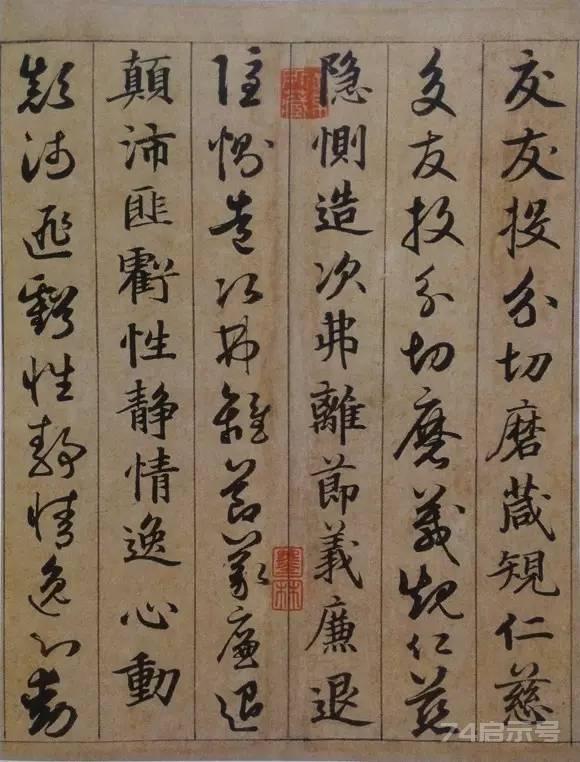 交友投分切磨葴規仁慈
交友投分切磨箴規仁慈
隐惻造次弗離節義廉退
隐惻造次弗離節義廉退
顛沛匪虧性静情逸心動
顛沛匪虧性静情逸心動
墨林
74启示号